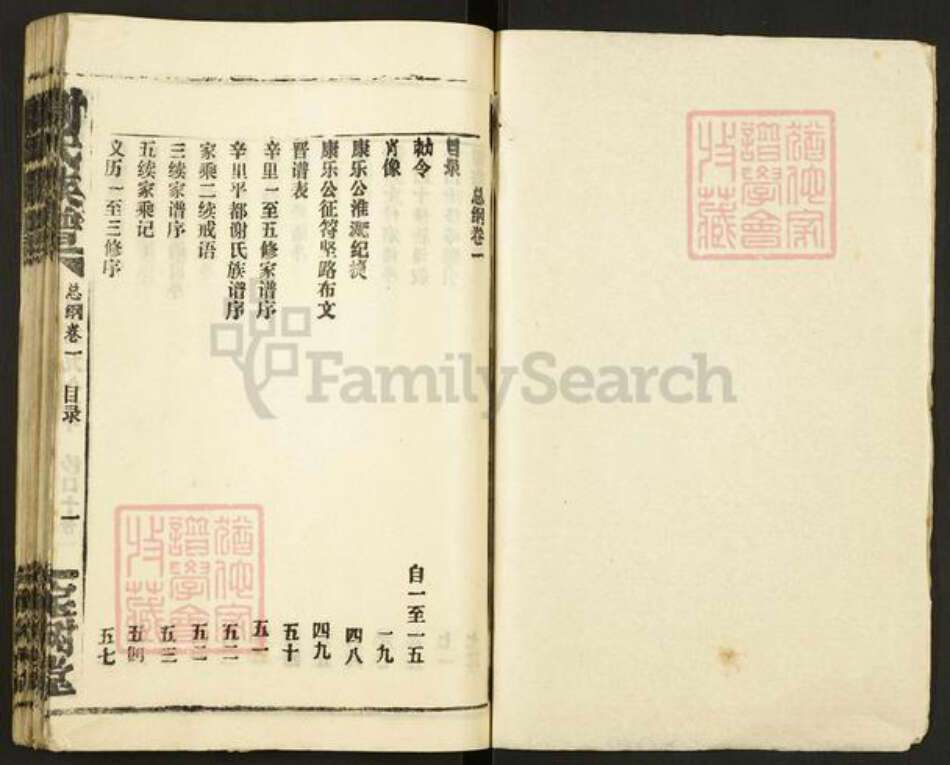 总纲卷一
目录
勅令 自一至一五
肖像 一九
康乐公淮淝纪 四八
康乐公征苻坚路布文 四九
晋谱表 五十
辛里一至五修家谱序 五一
辛里平都谢氏族谱序 五二
家乘二续戒语 五二
三续家谱序 五三
五续家乘记 五
义历一至三修序 五七
谢氏族谱
总纲卷一
目录
一
宝树堂
FamilySearch